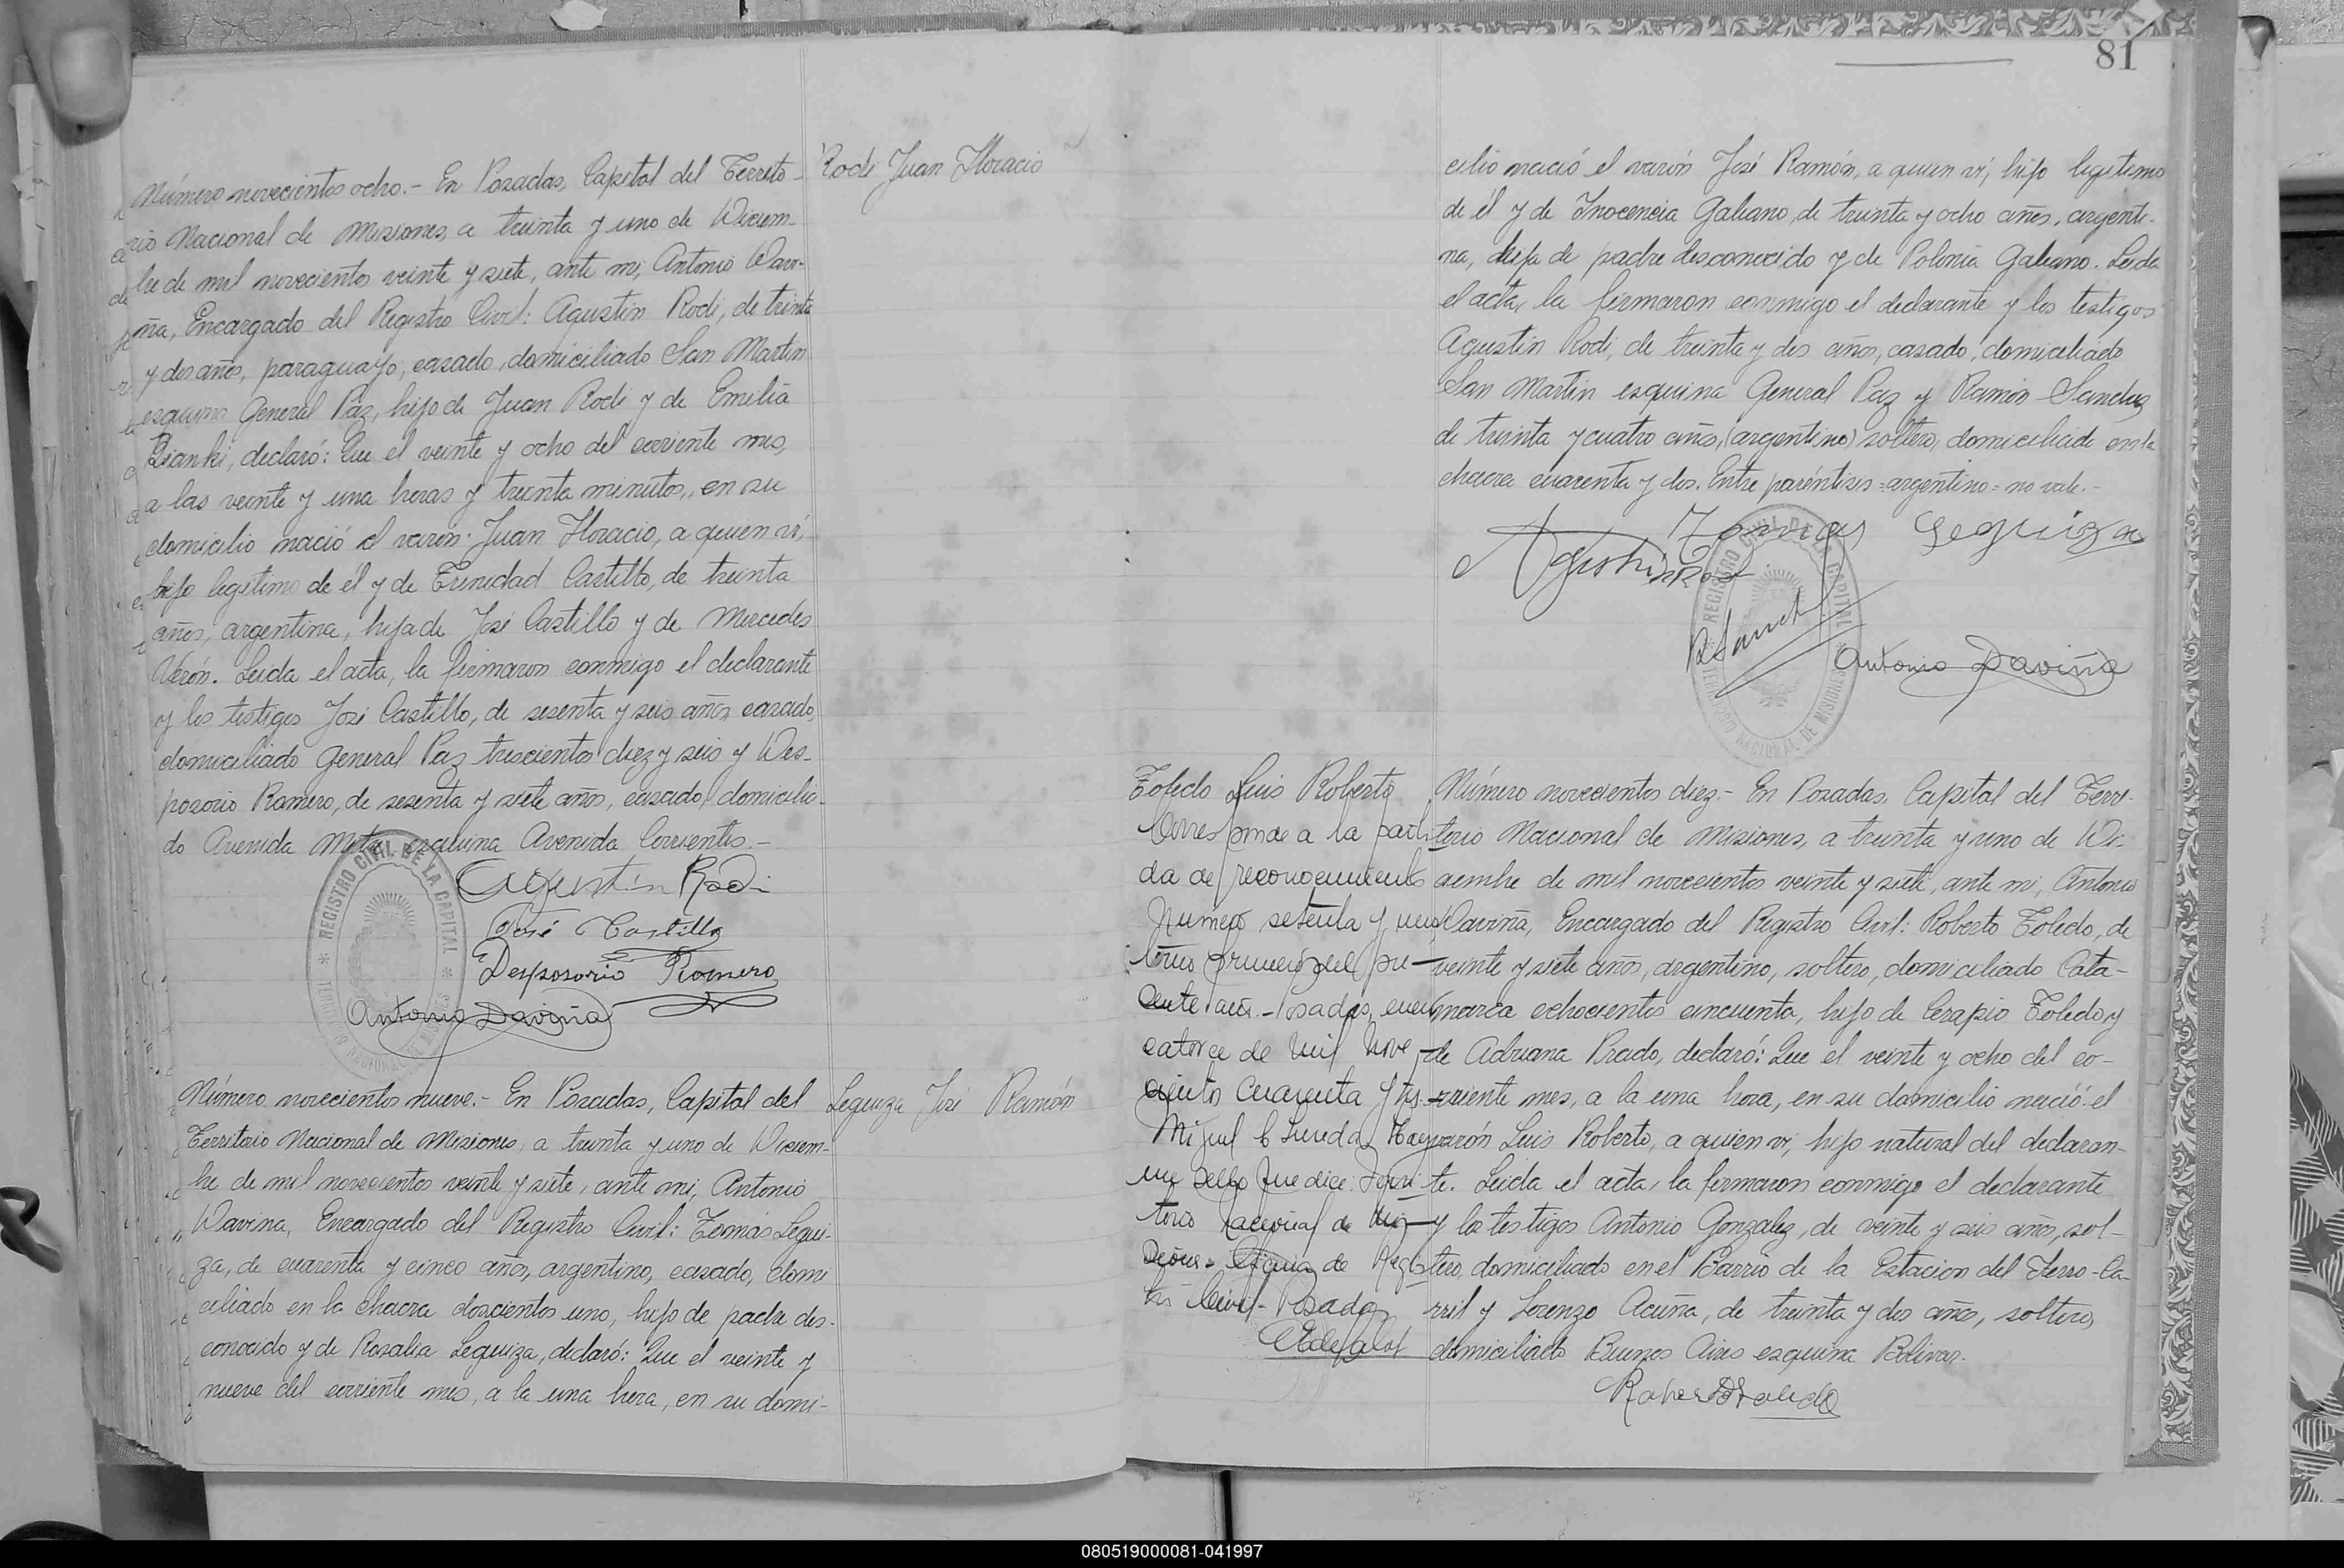 Rodi Juan Horacio
Número novecientos ocho.- En Posadas, Capital del Territo-
rio Nacional de Misiones, a treinta y uno de Diciem-
bre de mil novecientos veinte y siete, ante mi, Antonio Davi-
ña, Encargado del Registro Civil: Agustin Rodi, de trinta
y dos años, paraguayo, casado, domiciliado San Martin
esquina General Paz, hijo de Juan Rodi y de Emilia
Bianki, declaró: Que el veinte y ocho del corriente mes,
a las veinte y una horas y treinta minutos, en su
domicilio nació el varón Juan Horacio, a quien ví,
hijo legítimo de él y de Trinidad Castillo, de treinta
años, argentina, hija de José Castillo y de Mercedes
Verón. Leida el acta, la firmaron conmigo el declarante
y los testigos José Castillo, de sesenta y seis años casado,
domiciliado General Paz trescientos diez y seis y Des-
posorio Romero, de sesenta y siete años, casado, domicilia-
do Avenida Mitre esquina Avenida Corrientes.-
Agustín Rodi
José Castillo
Desposorio Romero
Antonio Daviña
REGISTRO CIVIL DE LA CAPITAL
Leguiza José Ramón
Número novecientos nueve.- En Posadas, Capital del
Territorio Nacional de Misiones, a treinta y uno de Diciem-
bre de mil novecientos veinte y siete, ante mi, Antonio
Davina, Encargado del Registro Civil: Tomás Legui-
za, de cuarenta y cinco años, argentino, casado, domi
ciliado en la chacra doscientos uno, hijo de padre des-
conocido y de Rosalia Leguiza, declaró: Que el veinte y
nueve del corriente mes, a la una hora, en su domi-
81
cilio nació el varón José Ramón, a quien ví, hijo legítimo
de él y de Inocencia Galiano, de treinta y ocho años, argenti-
na, hija de padre desconocido y de Polonia Galiano. Leida
el acta, la firmaron conmigo el declarante y los testigos
Agustin Rodi, de treinta y dos años, casado, domiciliado
San Martin esquina General Paz y Ramón Sanchez
de treinta y cuatro años, (argentino) soltero, domiciliado en la
chacra cuarenta y dos. Entre paréntisis =argentino= no vale.-
Tomas Leguiza
Agustin Rodi
R Sanch
Antonio Daviña
REGISTRO CIVIL DE LA CAPITAL
TERRITORIO NACIONAL DE MISIONES
Toledo Luis Roberto
Corresponde a la parti
da de reconocimiento
Numero setenta y
tomo primero del pre-
sente año.- Posadas, enero
catorce de mil nove
cientos cuarenta y
Miguel C
un sello que dice: Terri
torio Nacional de Mi
siones- Oficina de Regis
tro Civil- Posadas
Número novecientos diez.- En Posadas, Capital del Terri-
torio Nacional de Misiones, a treinta y uno de Di-
ciembre de mil novecientos veinte y siete, ante mi, Antonio
Daviña, Encargado del Registro Civil: Roberto Toledo, de
veinte y siete años, argentino, soltero, domiciliado Cata-
marca ochocientos cincuenta, hijo de Cerapio Toledo y
de Adriana Prado, declaró: Que el veinte y ocho del co-
rriente mes, a la una hora, en su domicilio nació el
varón Luis Roberto, a quien ví, hijo natural del declaran-
te. Leida el acta, la firmaron conmigo el declarante
y los testigos Antonio Gonzalez, de veinte y seis años, sol-
tero, domiciliado en el Barrio de la Estacion del Ferro-Ca-
rril y Lorenzo Acuña, de treinta y dos años, soltero,
domiciliado Buenos Aires esquina Bolivar.
Roberto Toledo
080519000081-041997